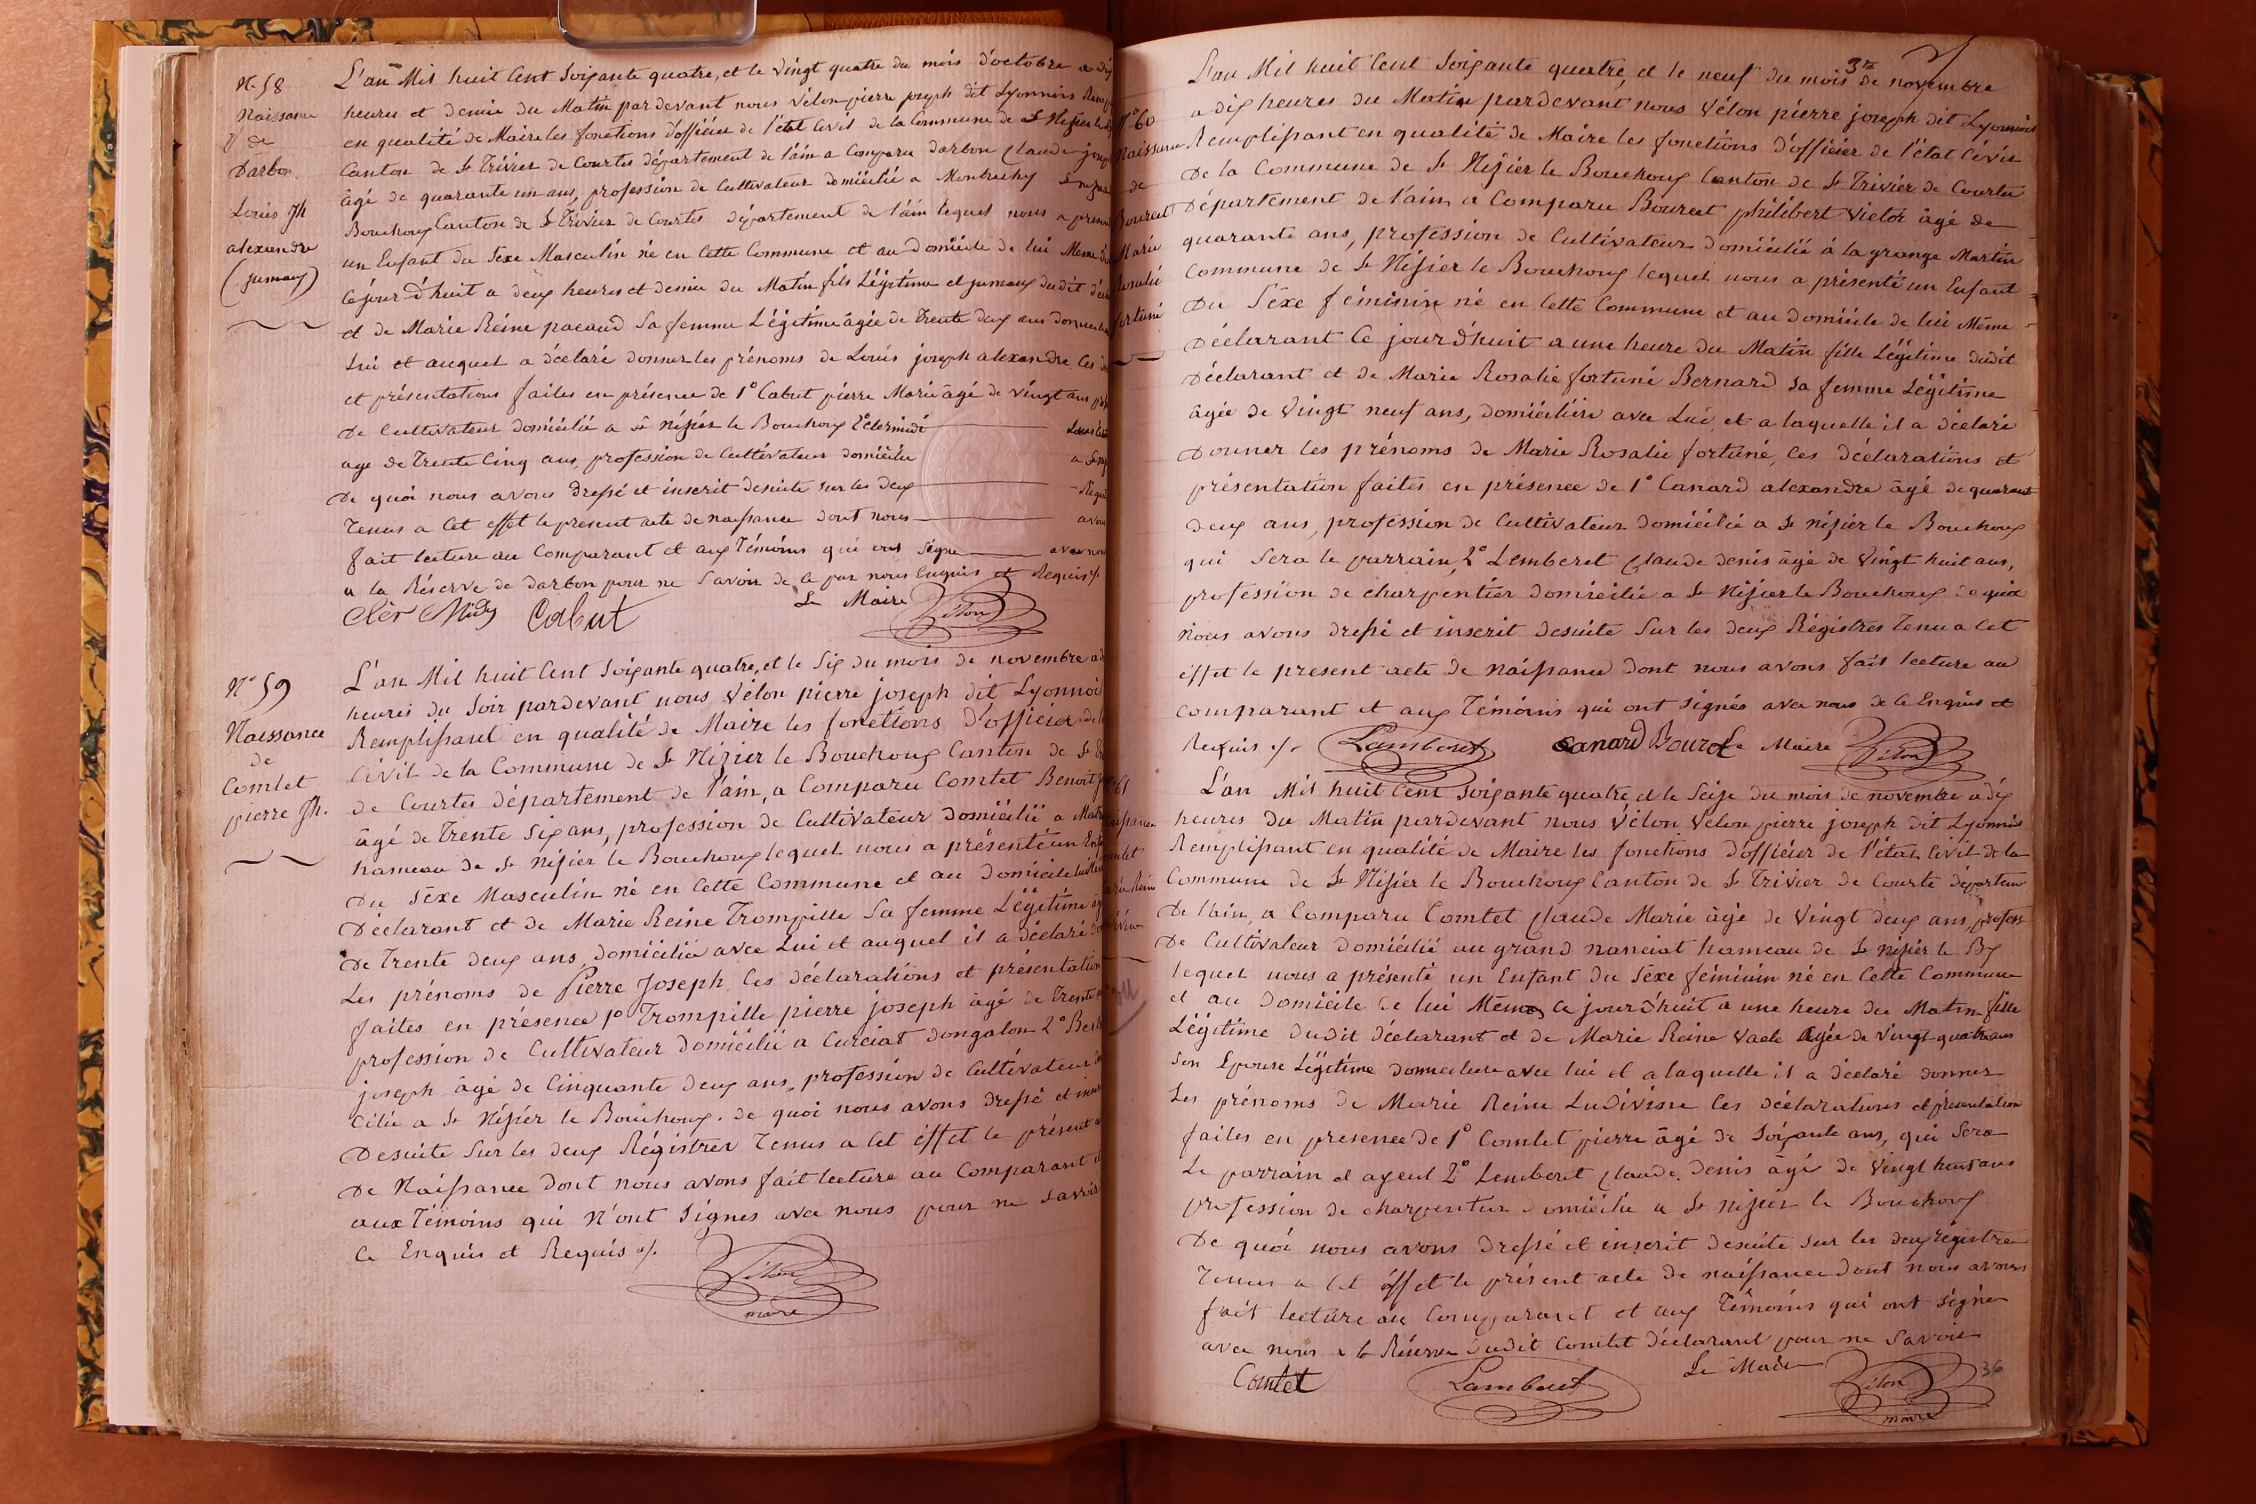 N. 58
Naissance
de
Darbon
Louis Jh
alexandre
(jumaux)
L'an Mil huit Cent Soixante quatre, et le vingt quatre du mois d'octobre a dix
heures et demie du Matin pardevant nous Vélon pierre joseph dit Lyonnois
en qualité de Maire les fonctions d'officier de l'état Civil de la Commune de St Nizier le
Canton de St Trivier de Courtes département de l'ain a Comparu Darbon Claude
âgé de quarante un ans, profession de Cultivateur domicilié a
Bouchoux Canton de St Trivier de Courtes département de l'ain lequel nous a
un Enfant du Sexe Masculin né en Cette Commune et au Domicile de lui Meme
Cejour d'huit a deux heures et demie du Matin fils Légitime et jumaux dudit
et de Marie Réine pacaud Sa femme Légitime âgée de Trente deux ans
Lui et auquel a déclaré donner les prénoms de Louis joseph alexandre Ces
et présentations faites en présence de 1° Cabut pierre Marie âgé de vingt ans
de Cultivateur domicilié a St nizier le Bouchoux 2° Clermidi
age de Trente Cinq ans, profession de Cultivateur domicilié
De quoi nous avons dressé et inscrit desuite sur les deux
Tenus a Cet effet le present acte de naissance dont nous
fait lecture au Comparant et aux Témoins qui ont Signe avec nous
a la Réserve de Darbon pour ne Savoir de Ce par nous Enquis et Requis ./.
Cler Midy Cabut Le Maire Vélon
N° 59
Naissance
de
Comtet
pierre Jh.
L'an Mil huit Cent Soixante quatre, et le Six du mois de novembre a
heures du Soir pardevant nous Vélon pierre joseph dit Lyonnois
Remplissant en qualité de Maire les fonctions d'officier de
Civil de la Commune de St Nizier le Bouchoux Canton de St
de Courtes département de l'ain, a Comparu Comtet Benoit
âgé de Trente Six ans, profession de Cultivateur domicilié a
hameau de St Nizier le Bouchoux lequel nous a présenté un
Du Sexe Masculin né en Cette Commune et au domicile
Déclarant et de Marie Reine Trompille Sa femme Légitime
De Trente deux ans, domiciliée avec Lui et auquel il a déclaré
Les prénoms de Pierre Joseph Ces déclarations et présentation
faites en présence 1° Trompille pierre joseph âgé de Trente
profession de Cultivateur domicilié a Curciat dongalon 2°
joseph âgé de Cinquante deux ans, profession de Cultivateur
Cilié a St Nizier le Bouchoux. de quoi nous avons dressé et
Desuite Sur les deux Régistres Tenus a Cet effet le présent
De Naissance dont nous avons fait lecture au Comparant
aux Témoins qui N'ont Signes avec nous pour ne Savoir
Ce Enquis et Requis ./.
Vélon
maire
N° 60
Naissance
de
Bourcet
Marie
Rosalie
fortuné
L'an Mil huit Cent Soixante quatre, et le neuf du mois de novembre
a dix heures du Matin pardevant nous Vélon pierre joseph dit Lyonnois
Remplissant en qualité de Maire les fonctions d'officier de l'état Civil
De la Commune de St Nizier le Bouchoux Canton de St Trivier de Courtes
Département de l'ain a Comparu Bourcet philibert Victor âgé de
quarante ans, profession de Cultivateur domicilié à la grange Martin
Commune de St Nizier le Bouchoux lequel nous a présenté un Enfant
Du Séxe féminin né en Cette Commune et au Domicile de lui Même
Déclarant Ce jour d'huit a une heure du Matin fille Légitime dudit
Déclarant et de Marie Rosalie fortuné Bernard Sa femme Légitime
âgée de Vingt neuf ans, domiciliée avec Lui et a laquelle il a déclaré
Donner les prénoms de Marie Rosalie fortuné, Ces déclarations et
présentation faites en présence de 1° Canard alexandre âgé de quarante
deux ans, profession de Cultivateur domicilié a St nizier le Bouchoux
qui Sera le parrain, 2° Lemberet Claude denis âgé de Vingt huit ans,
profession de charpentier domicilié a St Nizier le Bouchoux de quoi
Nous avons dressé et inscrit desuite Sur les deux Régistres Tenu a Cet
effet le present acte de Naissance dont nous avons fait lecture au
Comparant et aux Témoins qui ont signés avec nous de Ce Enquis et
Requis ./. Lamberet Canard Bourcet Le Maire Vélon
61
L'an Mil huit Cent Soixante quatre, et le Seize du mois de novembre a dix
heures du Matin pardevant nous Vélon Vélon pierre joseph dit Lyonnois
Remplissant en qualité de Maire les fonctions d'officier de l'état Civil de la
Commune de St Nizier le Bouchoux Canton de St Trivier de Courte département
De l'ain, a Comparu Comtet Claude Marie âgé de Vingt deux ans, profess
De Cultivateur domicilié au grand nanciat hameau de St Nizier le Bx
lequel nous a présenté un Enfant du Séxe féminin né en Cette Commune
et au Domicile de lui Même Ce jour d'huit a une heure du Matin fille
Légitime dudit déclarant et de Marie Reine Vacle Agée de Vingt quatre ans
Son Epouse Légitime domiciliée avec lui et a laquelle il a déclaré donner
Les prénoms de Marie Reine Ludivine Ces déclarations et présentation
faites en presence de 1° Comtet pierre âgé de Soixante ans, qui Sera
Le parrain et ayeul 2° Lemberet Claude. denis âgé de Vingt huit ans
profession de charpentier domicilié a St nizier le Bouchoux
De quoi nous avons dressé et inscrit desuite sur les deux régistres
Tenus a Cet éffet le présent acte de naissance dont nous avons
fait lecture au Comparant et aux Témoins qui ont signés
avec nous a la Réserve dudit Comtet déclarant pour ne Savoir
Comtet Lamberet Le Maire Vélon 36
maire